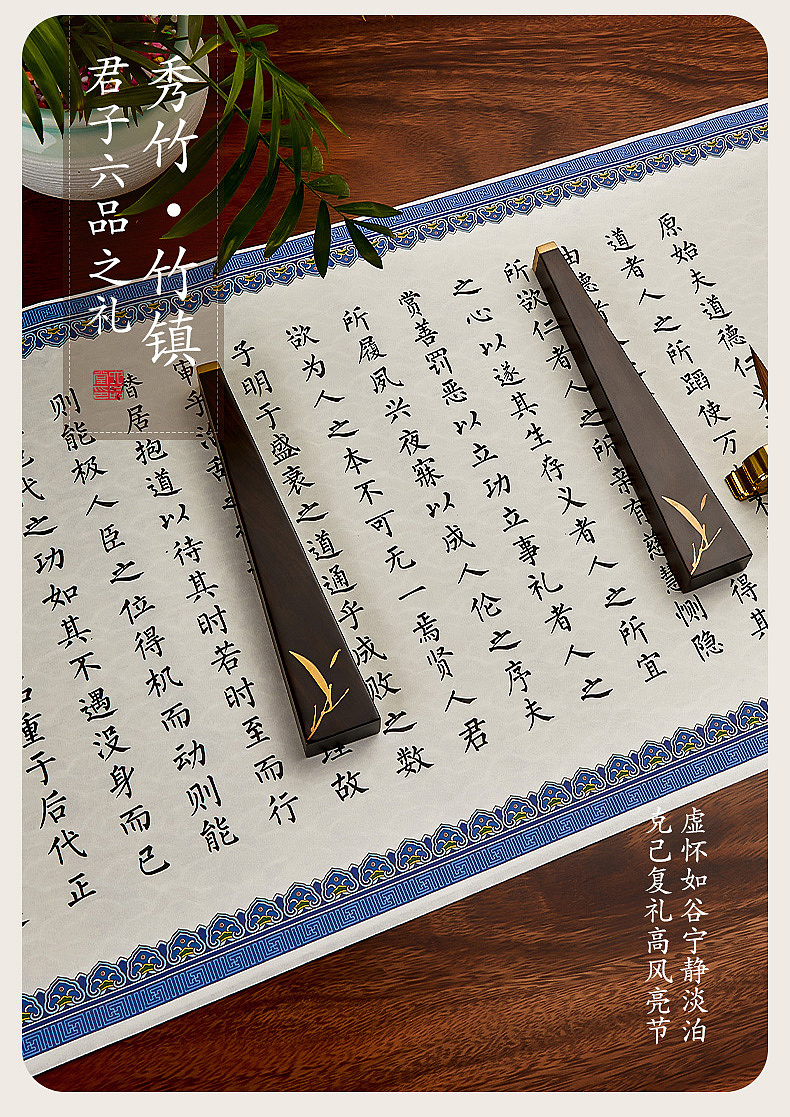 秀竹·竹镇
君子六品之礼
原始夫道德仁
道者人之所蹈使万
由德者得其
所欲仁者人之所亲有慈慧恻隐
之心以遂其生存义者人之所宜
赏善罚恶以立功立事礼者人之
所履夙兴夜寐以成人伦之序夫
欲为人之本不可无一焉贤人君
子明于盛衰之道通乎成败之数
审乎理故
居抱道以待其时若时至而行
则能极人臣之位得机而动则能
代之功如其不遇没身而已
重于后代正
虚怀如谷宁静淡泊
克己复礼高风亮节